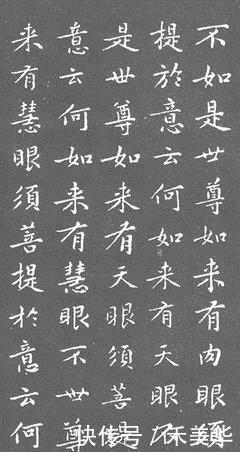 不如是世尊如来有肉眼須
提於意云何如来有天眼不
是世尊如来有天眼須菩提
意云何如来有慧眼不世尊
来有慧眼須菩提於意云何
快传号/美华